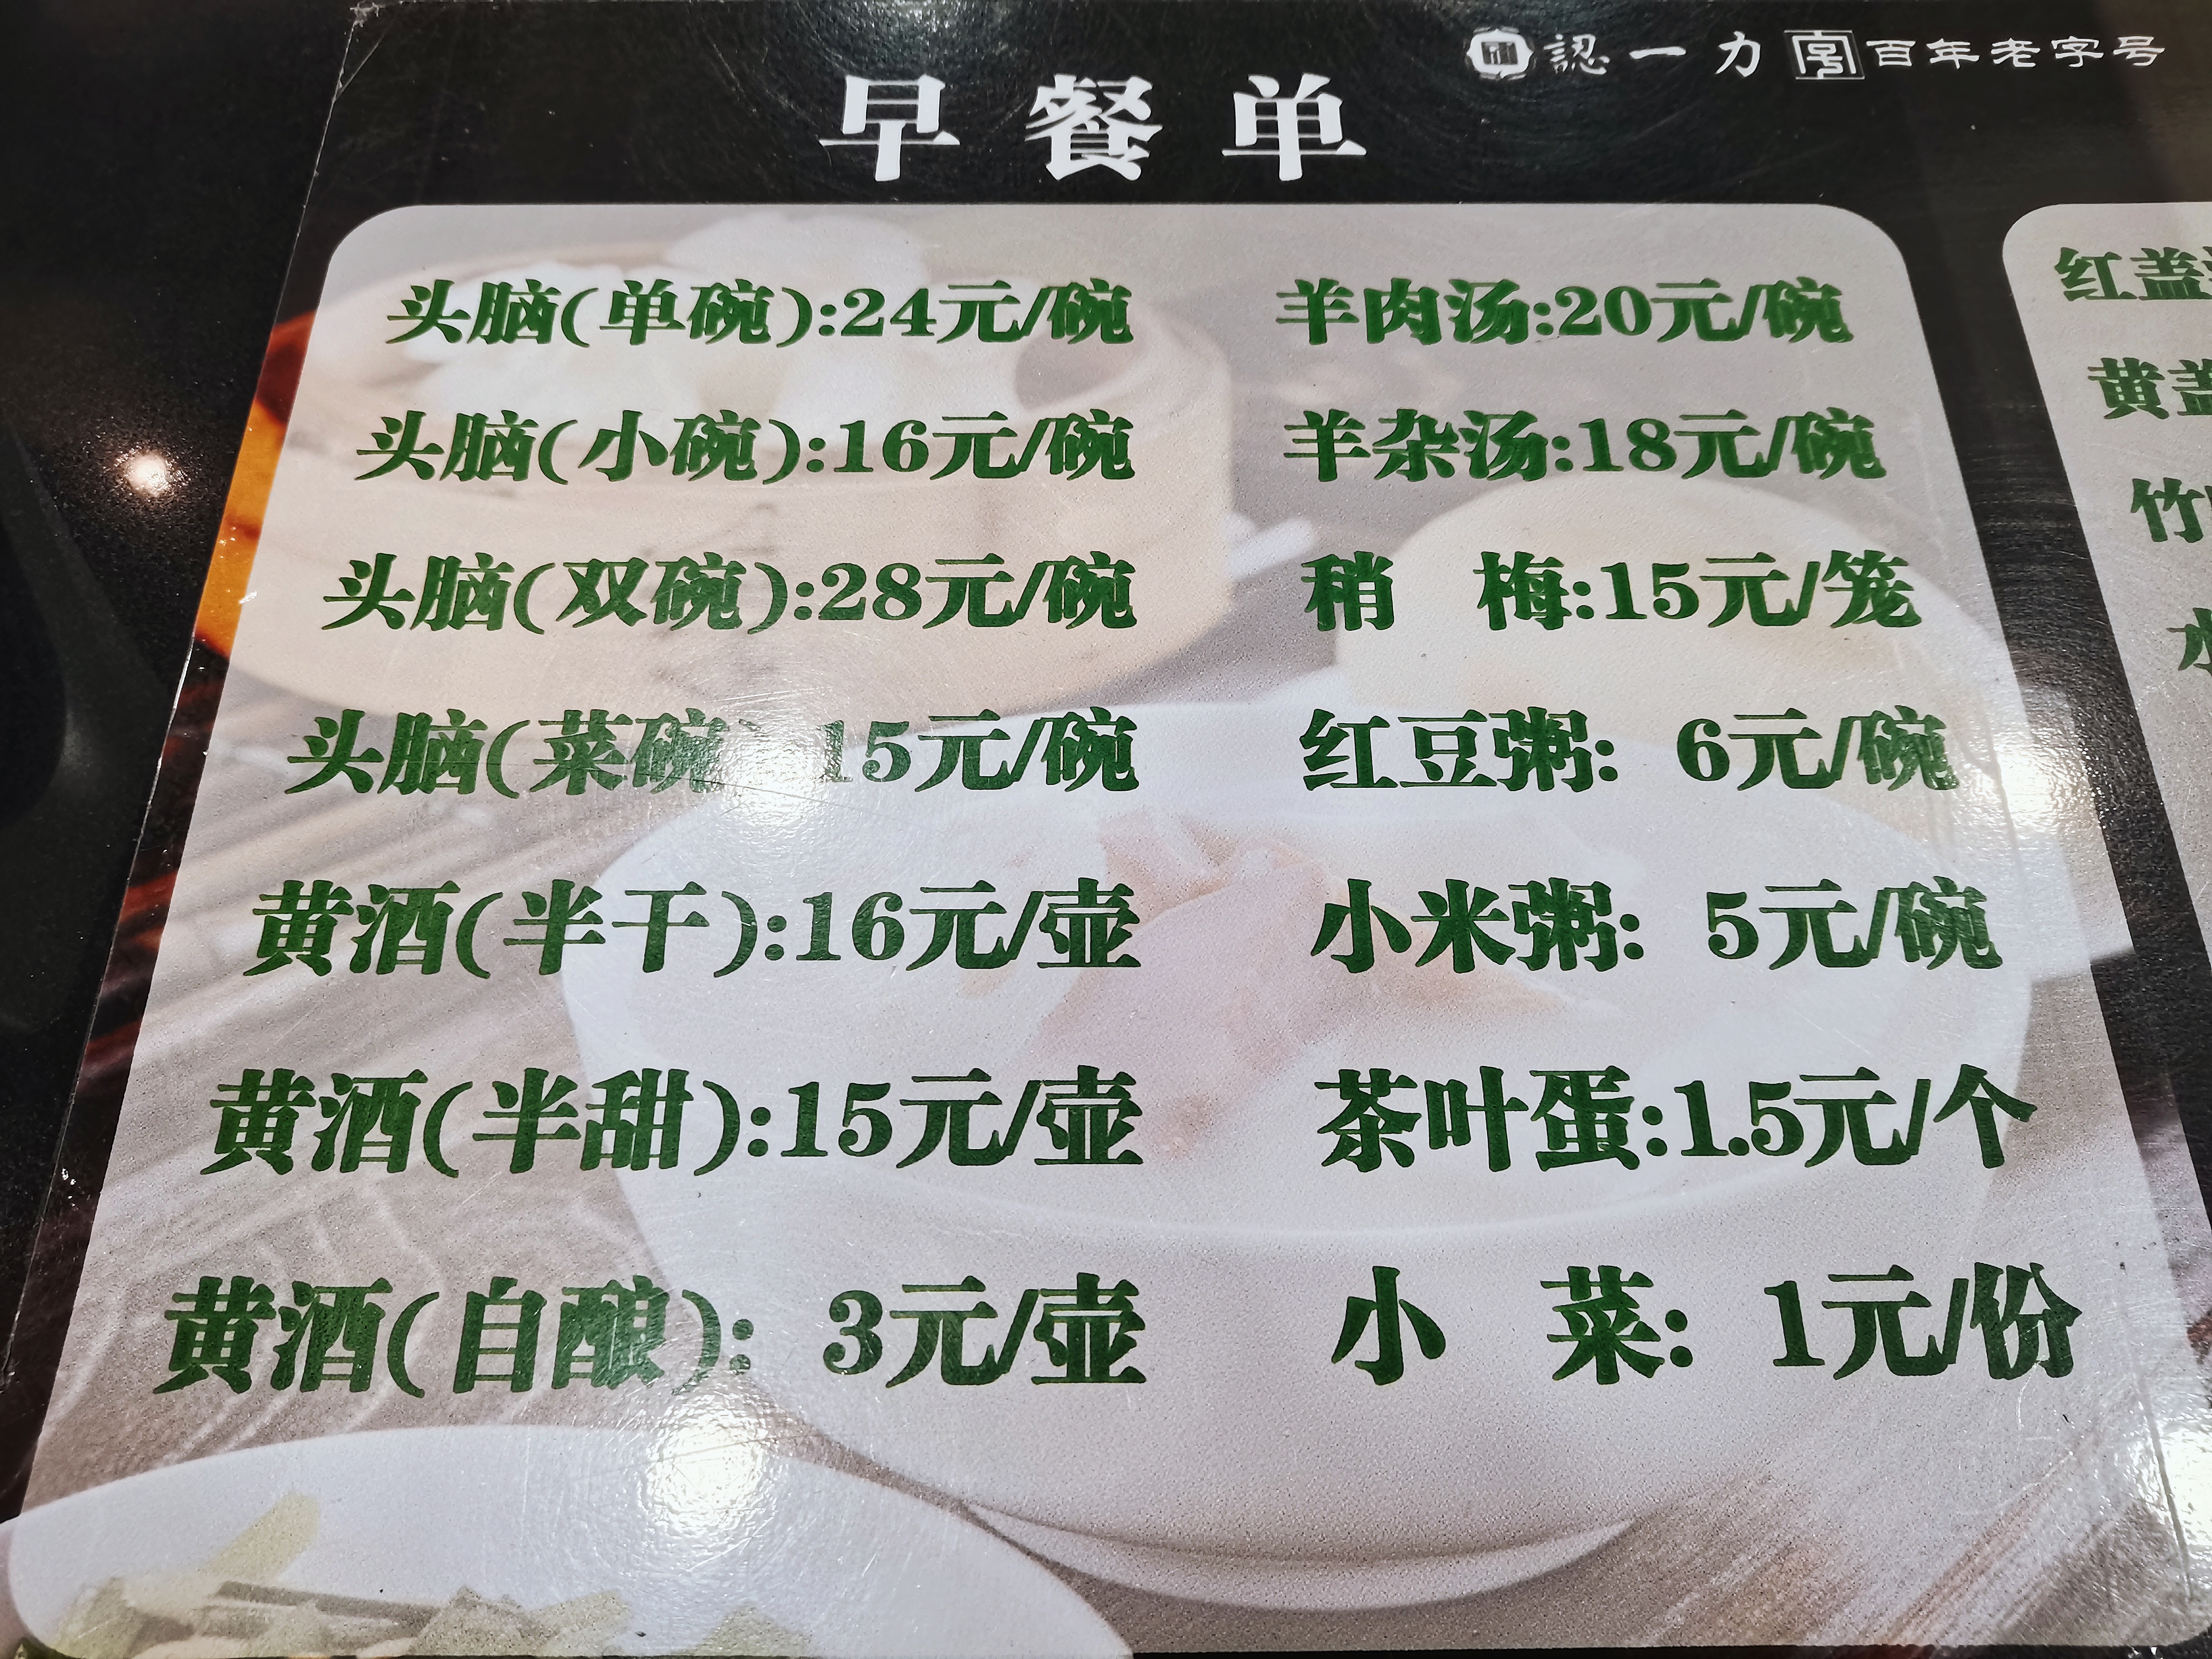 認一力 百年老字号
早餐单
头脑(单碗):24元/碗
头脑(小碗):16元/碗
头脑(双碗):28元/碗
头脑(菜碗) 15元/碗
黄酒(半干):16元/壶
黄酒(半甜):15元/壶
黄酒(自酿): 3元/壶
羊肉汤:20元/碗
羊杂汤:18元/碗
稍 梅:15元/笼
红豆粥: 6元/碗
小米粥: 5元/碗
茶叶蛋:1.5元/个
小 菜: 1元/份
红盖
黄盖
竹